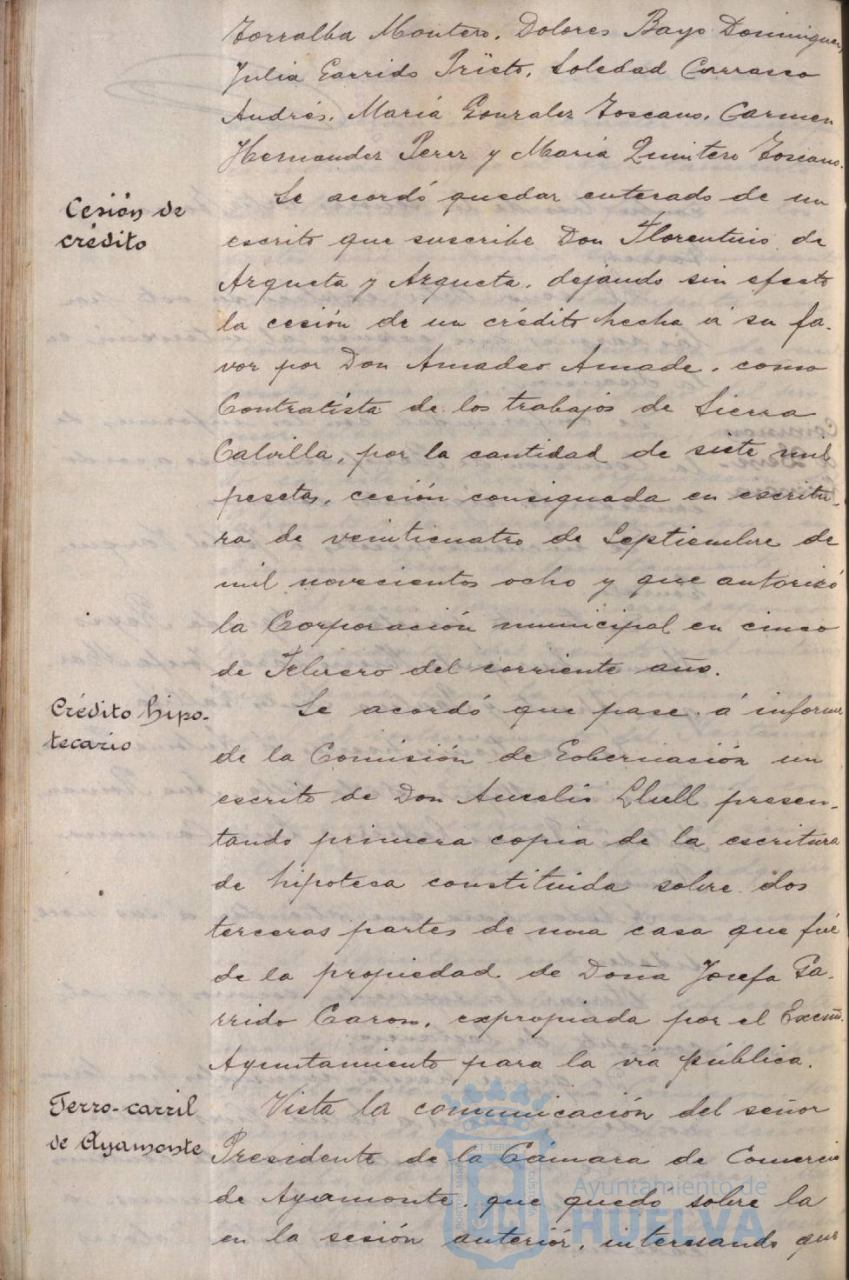 Torralba Montero, Dolores Bayo Dominguez,
Julia Garrido Prieto, Soledad Carrasco
Andrés, María Gonzalez Toscano, Carmen
Hernandez Perez y María Quintero Toscano.
Cesión de
crédito
Se acordó quedar enterado de un
escrito que suscribe Don Florentino de
Arqueta y Arqueta, dejando sin efecto
la cesión de un crédito hecha á su fa-
vor por Don Amadeo Amade, como
Contratista de los trabajos de Sierra
Calvilla, por la cantidad de siete mil
pesetas, cesión consignada en escritu-
ra de veinticuatro de Septiembre de
mil novecientos ocho y que autorizó
la Corporación municipal en cinco
de Febrero del corriente año.
Crédito hipo-
tecario
Se acordó que pase á informe
de la Comisión de Gobernación un
escrito de Don Aurelio Llull presen-
tando primera copia de la escritura
de hipoteca constituida sobre dos
terceras partes de una casa que fué
de la propiedad de Doña Josefa Ga-
rrido Caron, expropiada por el Excmo.
Ayuntamiento para la via pública.
Ferro-carril
de Ayamonte
Vista la comunicación del señor
Presidente de la Cámara de Comercio
de Ayamonte, que quedo sobre la
en la sesión anterior, interesando que
Ayuntamiento de
HUELVA